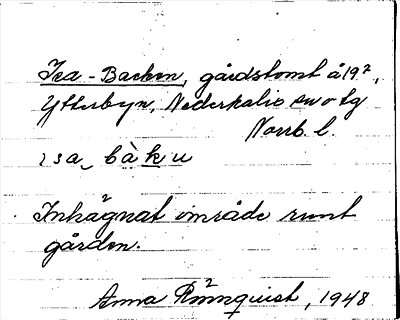 Isa-Backen, gårdstomt å 19²,
Ytterbyn, Nederkalix sn o tg
Norrb. l.
ɩsa‿bàku
Inhägnat område runt
gården.
Anna Rönnquist, 1948